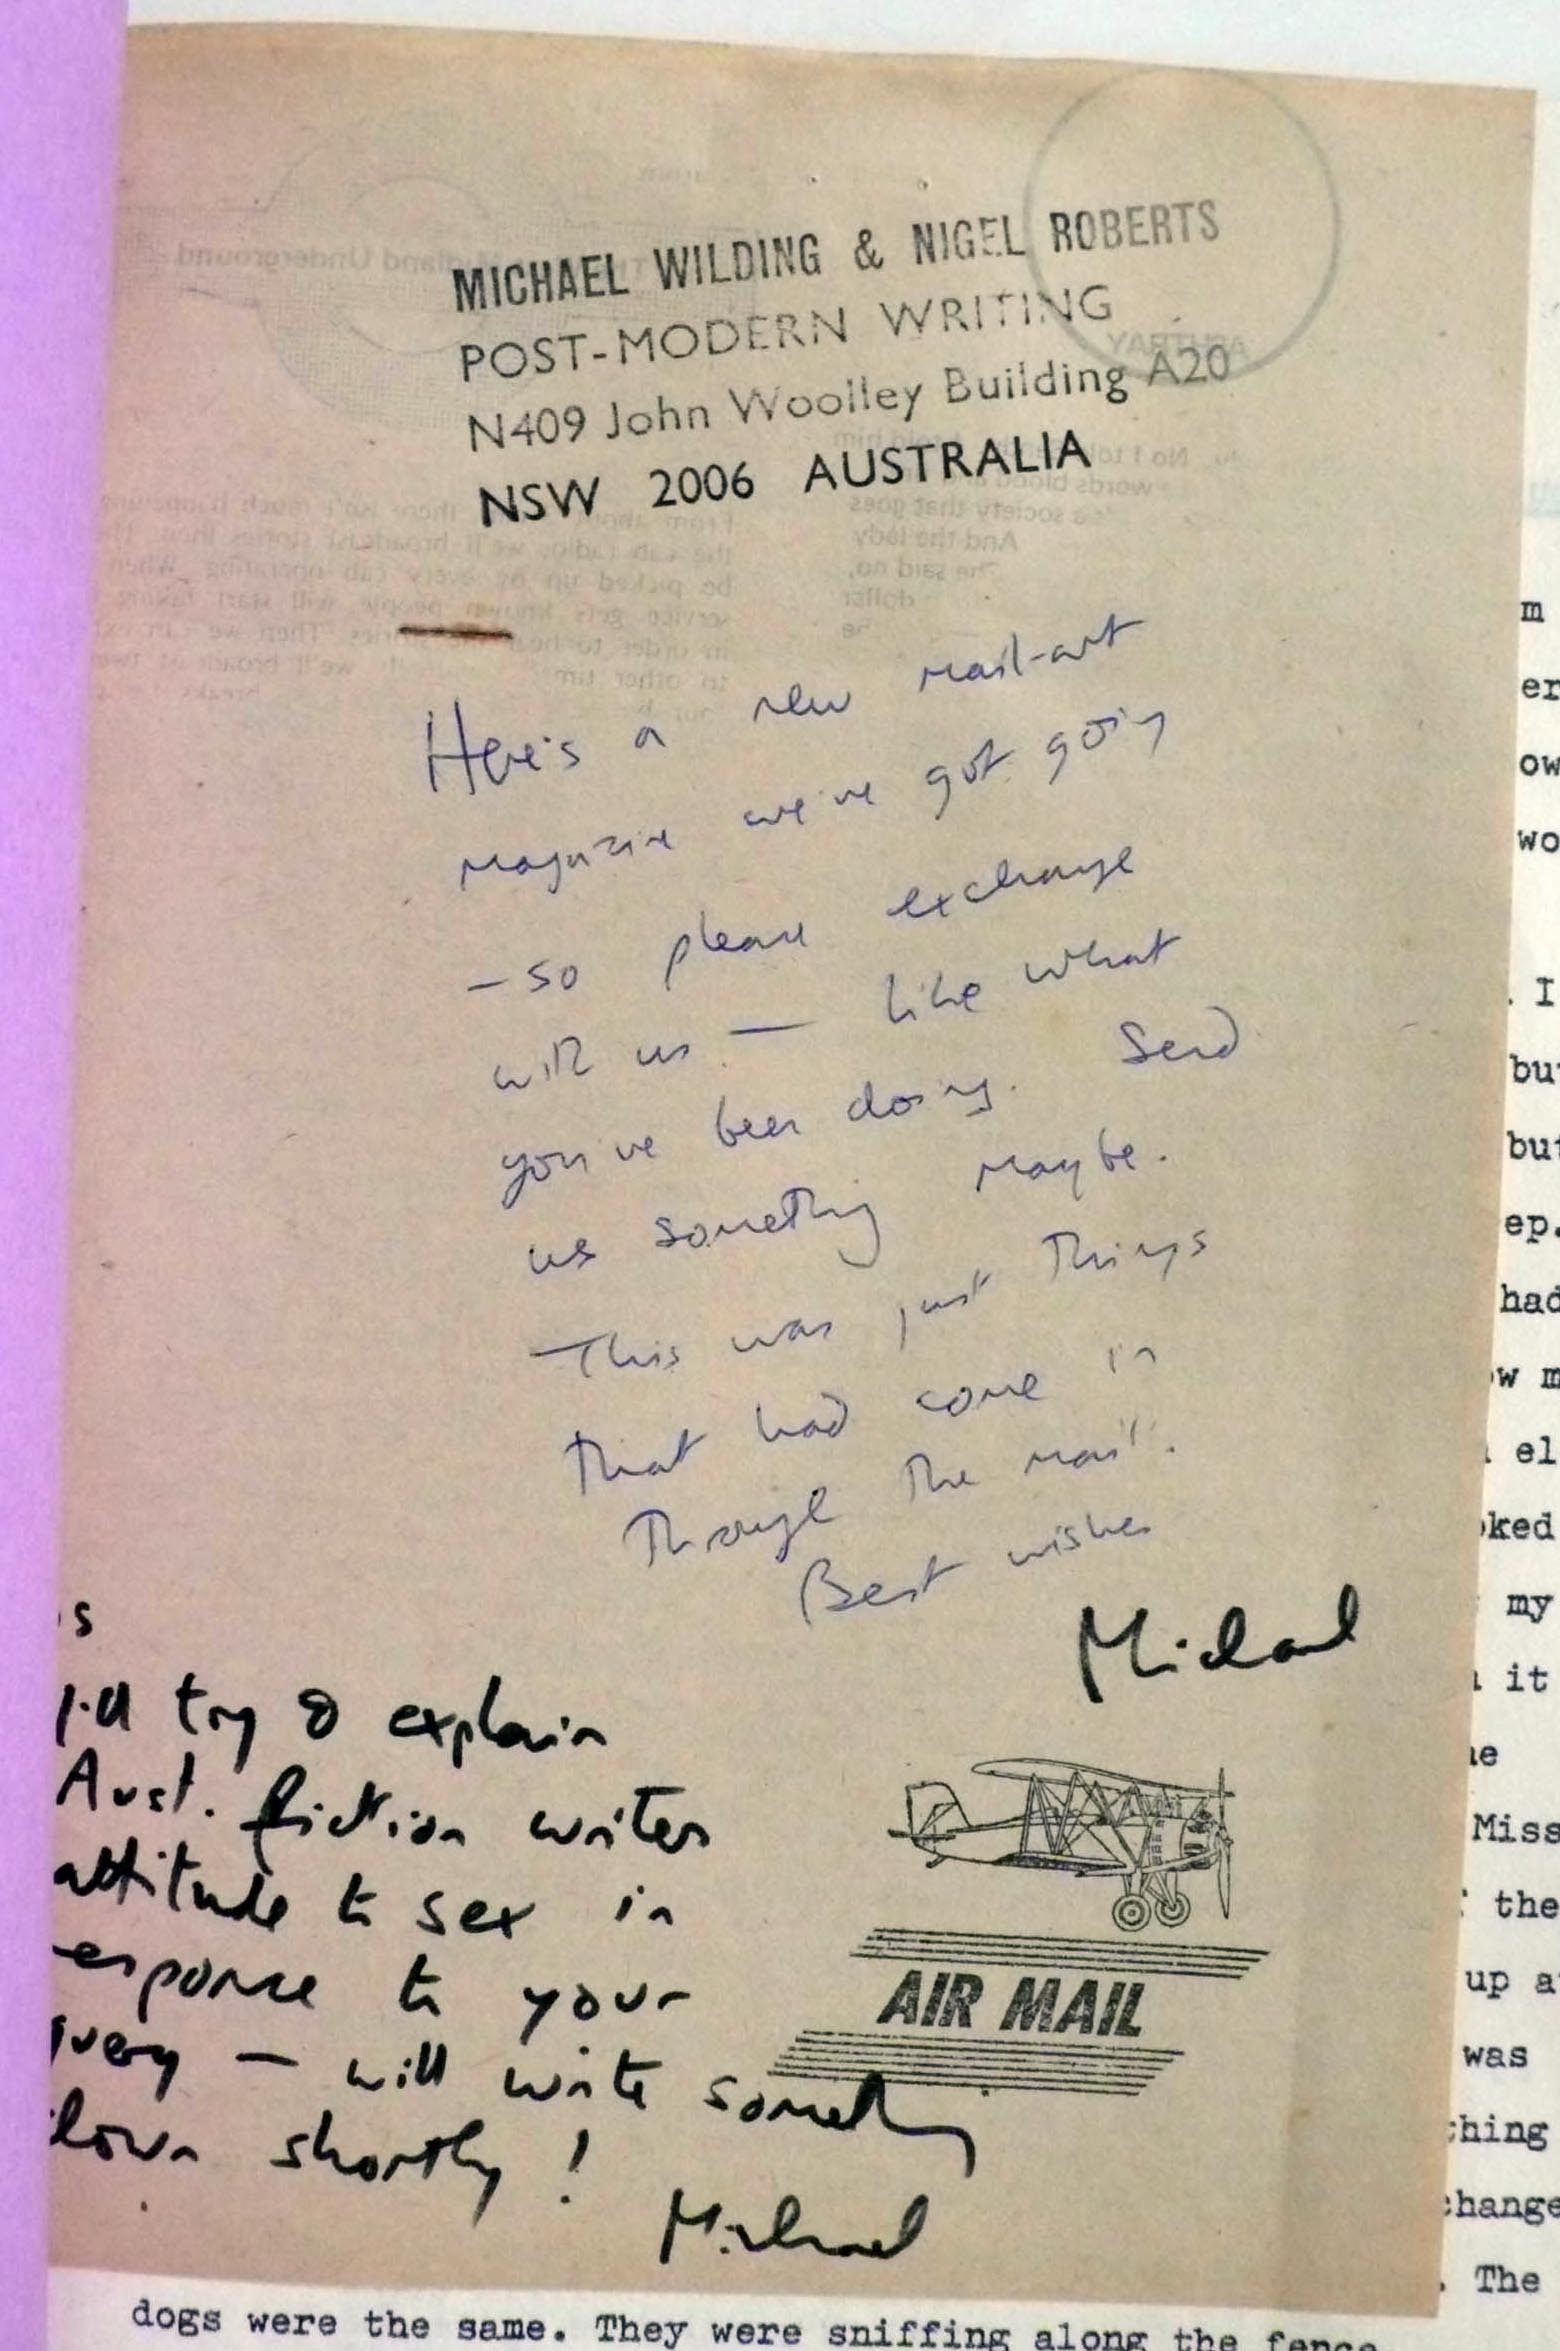 MICHAEL WILDING & NIGEL ROBERTS
POST-MODERN WRITING
N409 John Woolley Building A20
NSW 2006 AUSTRALIA
Here's a new mail-art
magazine we've got going
– so please exchange
with us — like what
you've been doing. Send
us something maybe.
This was just things
that had come in
through the mail.
Best wishes
Michael
s
I'll try & explain
Aust. fiction writers
attitude to sex in
esponse to your
query – will write something
down shortly!
Michael
AIR MAIL
m
er
ow
wo
. I
but
but
ep.
had
ow m
el
oked
my
it
Miss
the
up a
was
thing
change
. The
dogs were the same. They were sniffing along the fence